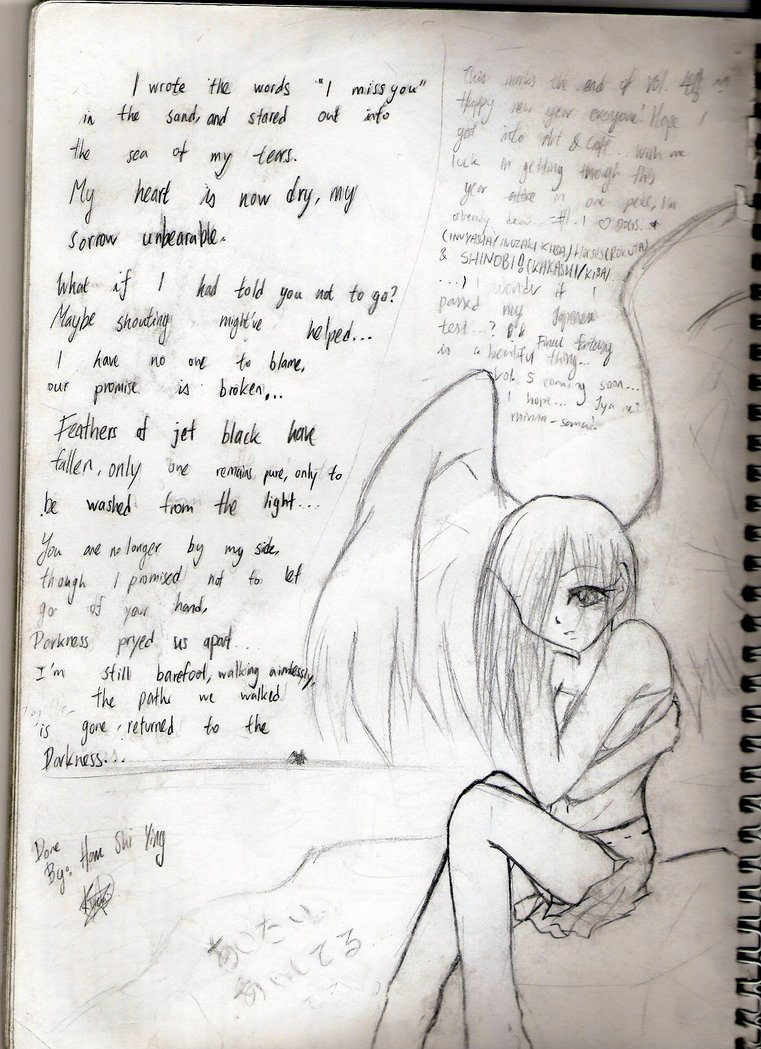 I wrote the words "I miss you"
in the sand, and stared out into
the sea of my tears.
My heart is now dry, my
sorrow unbearable.
What if I had told you not to go?
Maybe shouting might've helped...
I have no one to blame,
our promise is broken...
Feathers of jet black have
fallen, only one remains pure, only to
be washed from the light....
You are no longer by my side,
though I promised not to let
go of your hand.
Darkness pryed us apart...
I'm still barefoot, walking aimlessly,
the path we walked
is gone, returned to the
Darkness...
This marks the end of Vol. 4
Happy new year everyone! Hope I
get into Art & Cafe... wish me
luck in getting through this
year in one piece, I'm
already dead... I ♡ DOGS.
(INUYASHA/INUZAKI KIBA) HORSES (ROKUTA)
& SHINOBIS (KAKASHI/KIBA/
...) I wonder if I
passed my Japanese
test...? Final Fantasy
is a beautiful thing...
Vol. 5 coming soon...
I hope... Jya ne!
minna-sama!
Done
By: Hom Shi Ying
あいたい...
あいしてる...